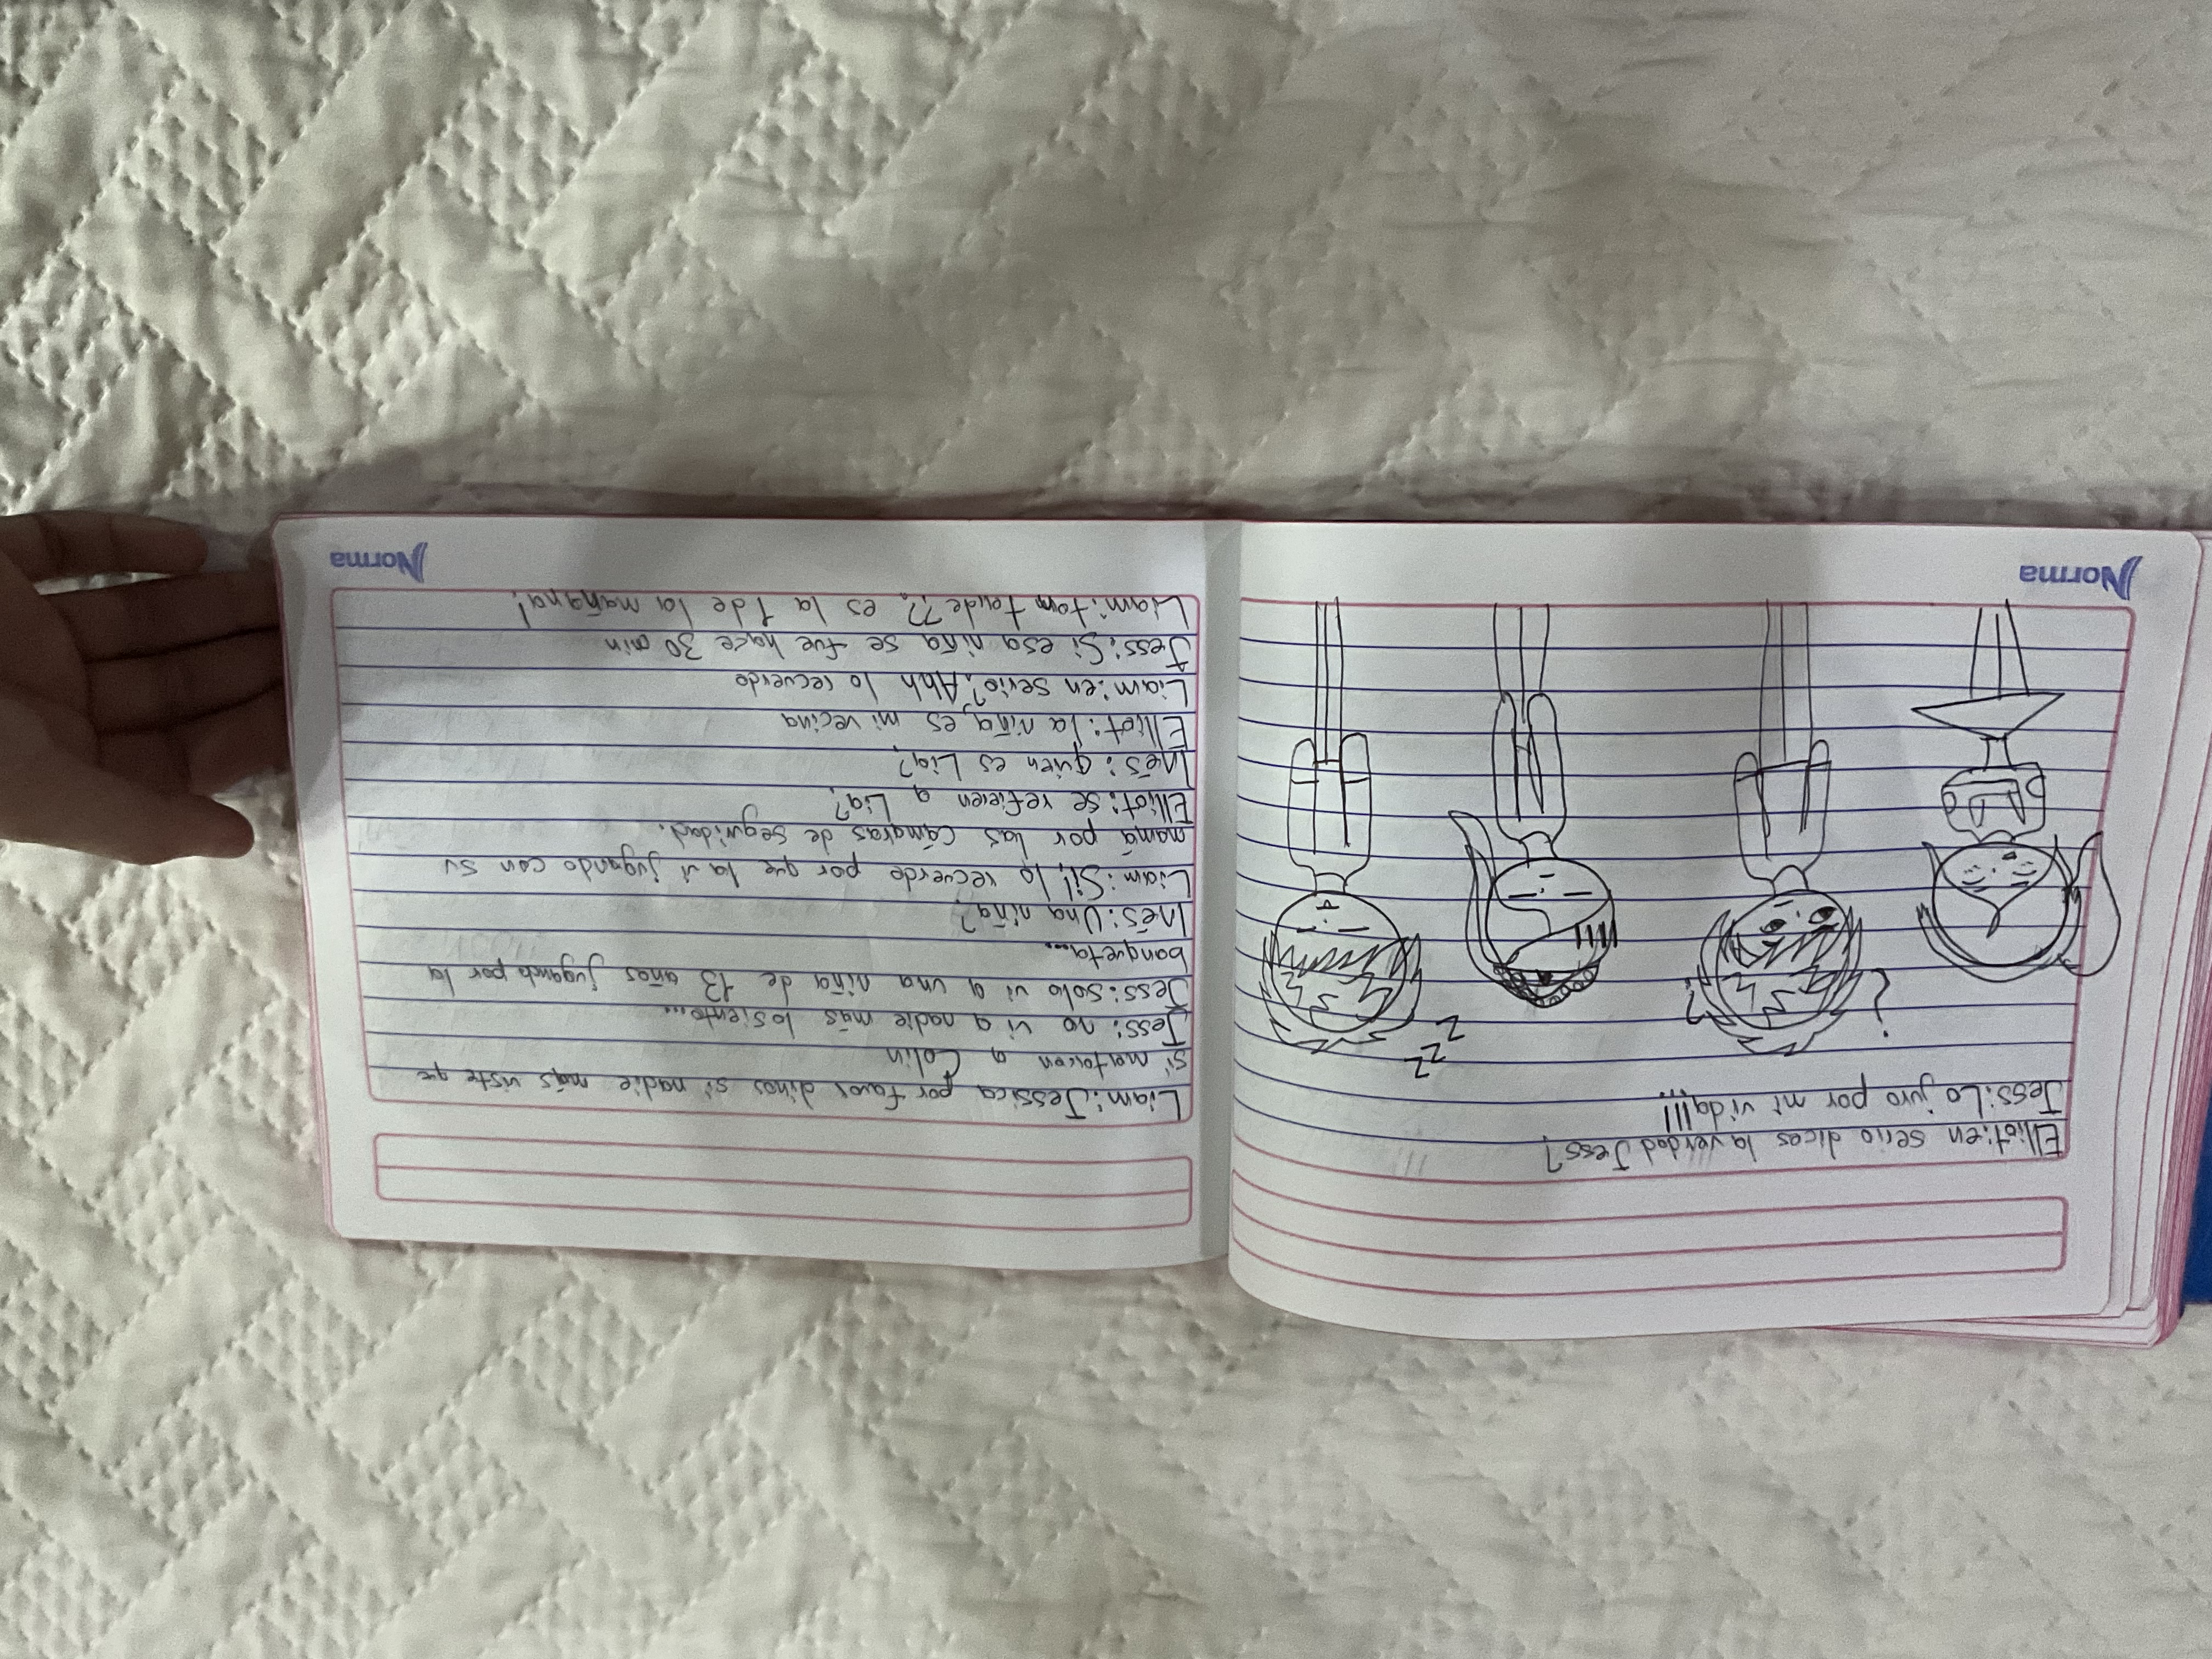 Elliot: en serio dices la verdad Jess?
Jess: Lo juro por mi vida!!!
?
?
zzz
Norma
Liam: Jessica por favor dinos si nadie más viste que
si mataron a Colin
Jess: no vi a nadie más losiento...
Jess: solo vi a una niña de 13 años jugando por la
banqueta...
Inés: Una niña?
Liam: Si! lo recuerdo por que la vi jugando con su
mamá por las cámaras de seguridad.
Elliot: se refieren a Lia?
Inés: quien es Lia?
Elliot: la niña, es mi vecina
Liam: en serio? Ahh lo recuerdo
Jess: Si esa niña se fue hace 30 min
Liam: tan tarde?? es la 1 de la mañana!
Norma